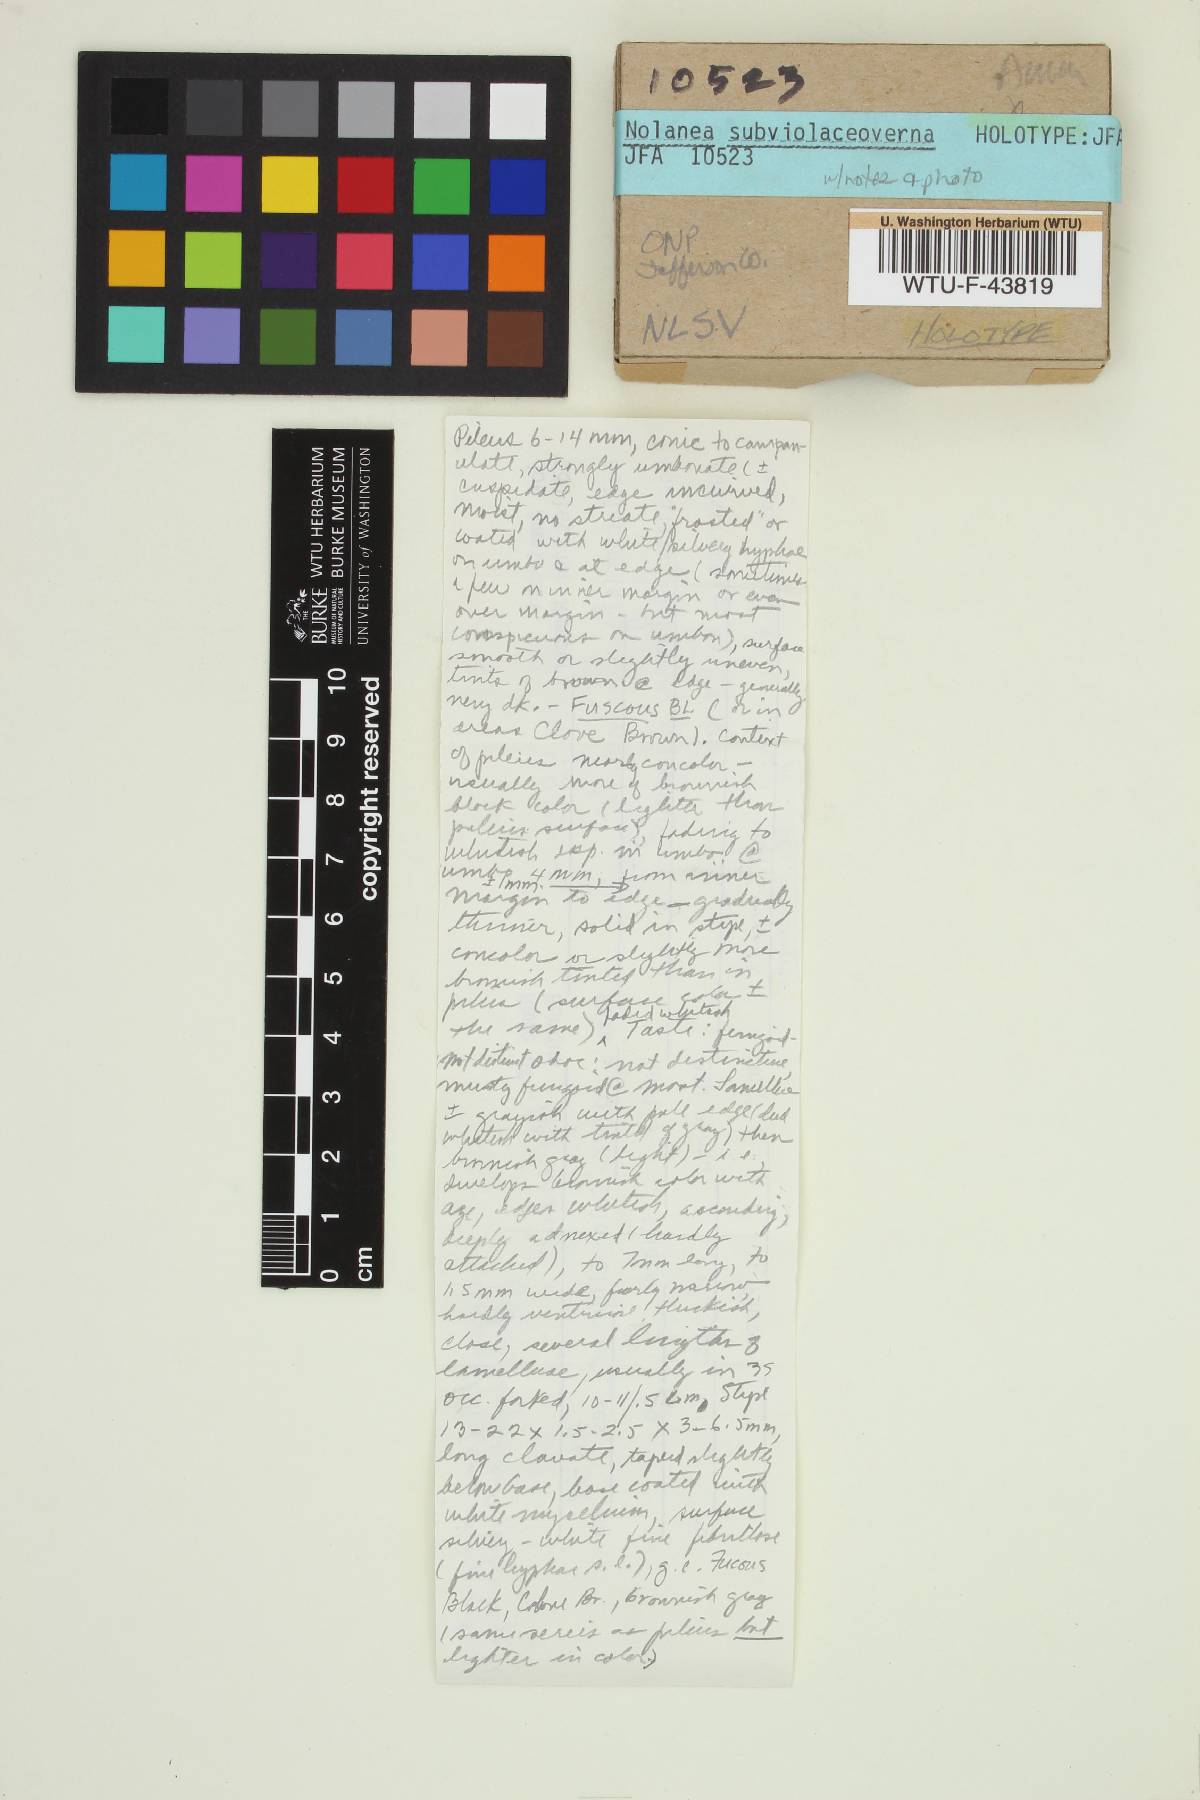 10523
Nolanea subviolaceoverna HOLOTYPE:JFA
JFA 10523
w/notes & photo
ONP
Jefferson Co.
NLSV
U. Washington Herbarium (WTU)
WTU-F-43819
HOLOTYPE
THE
BURKE
MUSEUM OF NATURAL
HISTORY AND CULTURE
WTU HERBARIUM
BURKE MUSEUM
UNIVERSITY of WASHINGTON
copyright reserved
0 1 2 3 4 5 6 7 8 9 10
cm
Pileus 6-14 mm, conic to campan-
ulate, strongly umbonate (±
cuspidate, edge incurved,
moist, no striate, "frosted" or
coated with white/silvery hyphae
on umbo & at edge (sometimes
a few on inner margin or even
over margin - but most
conspicuous on umbon), surface
smooth or slightly uneven,
tints of brown @ edge - generally
very dk. - Fuscous Bl. (or in
areas Clove Brown). Context
of pileus nearly concolor -
usually more of brownish
black color (lighter than
pileus surface), fading to
whitish esp. in umbo @
umbo 4 mm, from inner
± 1mm.
margin to edge - gradually
thinner, solid in stipe, ±
concolor or slightly more
brownish tinted than in
pileus (surface color ±
faded whitish
the same), Taste: fungoid-
not distinct Odor: not distinctive,
musty fungoid @ most. Lamellae
± grayish with pale edge (dull
whitish with tints of gray) then
brownish gray (light) - i.e.,
develops brownish color with
age, edges whitish, ascending,
deeply adnexed (hardly
attached), to 7mm long, to
1.5 mm wide, fairly narrow,
hardly ventricose, thickish,
close, several lengths of
lamellulae, usually in 3s
occ. forked, 10-11/.5 cm, Stipe
13-22 x 1.5-2.5 x 3-6.5mm,
long clavate, taper slightly
below base, base coated with
white mycelium, surface
silvery-white fine fibrillose
(fine hyphae s.l.), g.c. Fucous
Black, Clove Br., brownish gray
(same sereis as pileus but
lighter in color)